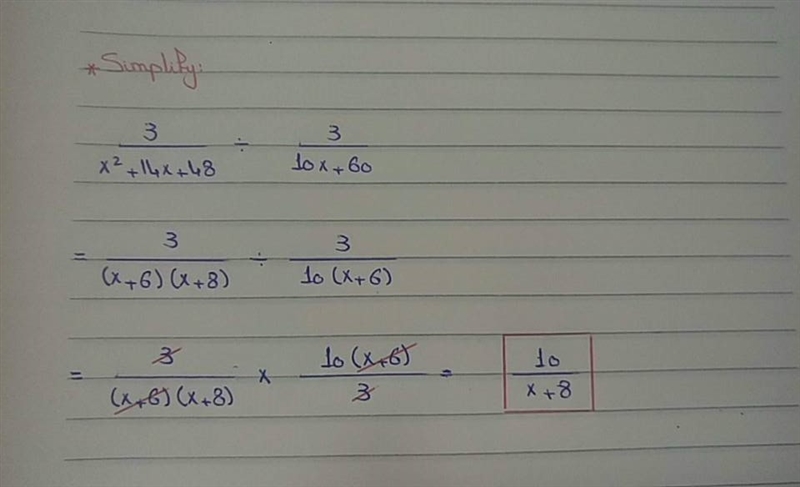 * Simplify:
3 / (x² + 14x + 48) ÷ 3 / (10x + 60)
= 3 / ((x+6)(x+8)) ÷ 3 / (10(x+6))
= 3 / ((x+6)(x+8)) × 10(x+6) / 3 = 10 / (x+8)